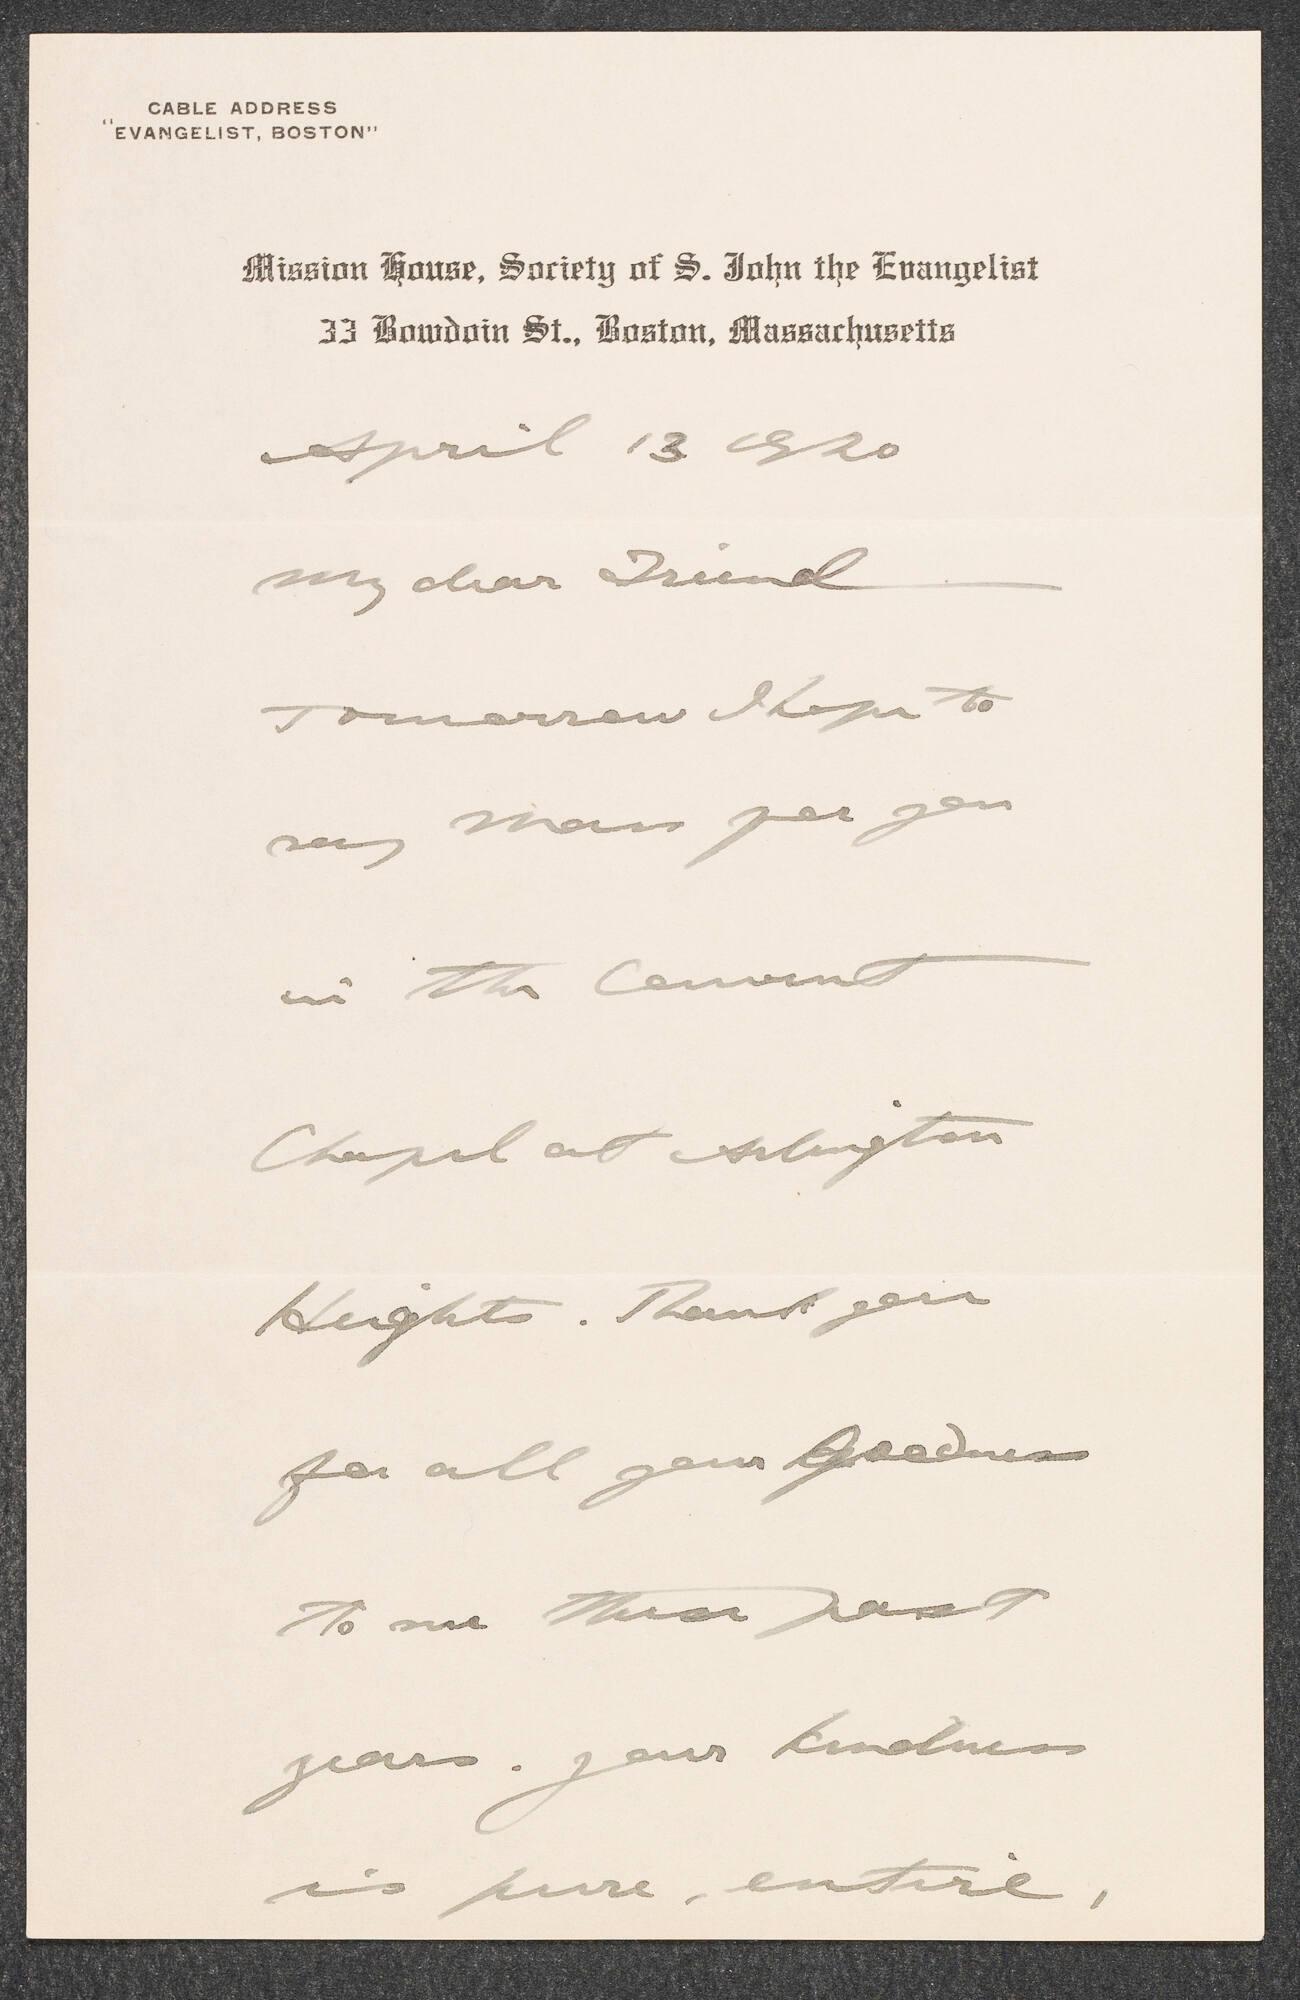 CABLE ADDRESS
"EVANGELIST, BOSTON"
Mission House, Society of S. John the Evangelist
33 Bowdoin St., Boston, Massachusetts
April 13 1920
My dear Friend
Tomorrow I hope to
say Mass for you
in the Convent
Chapel at Arlington
Heights. Thank you
for all your Goodness
to me these past
years. Your kindness
is pure, entire,